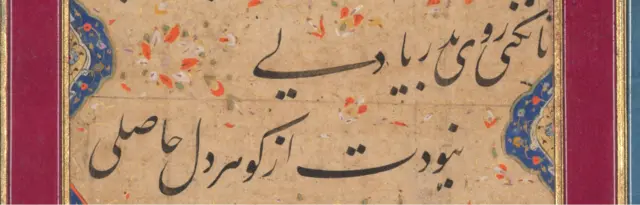 تا نکنی روی بدریا دلی
نبودت از کوهر دل حاصلی